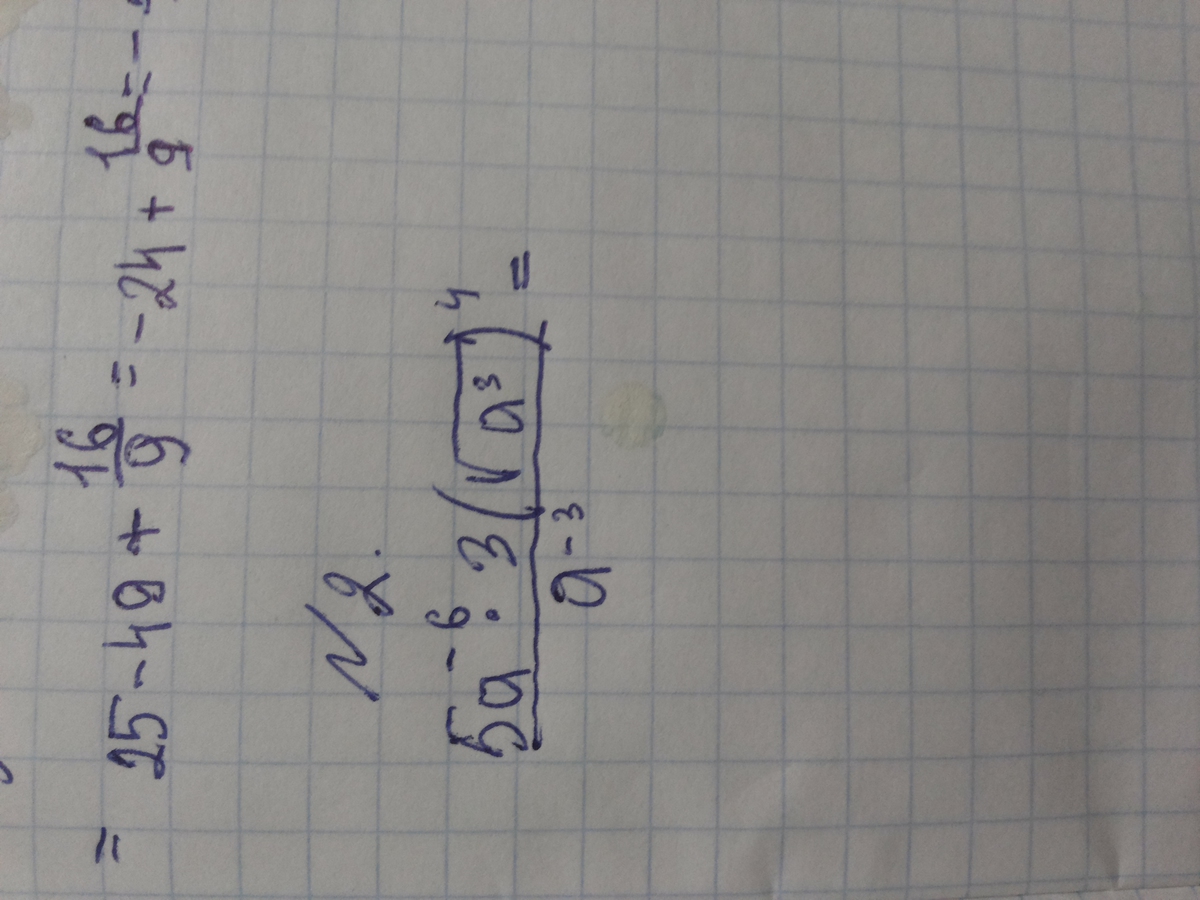 = 25 - 49 + 16/9 = -24 + 16/9 = -
№2.
5a⁻⁶ · 3(√a³)⁴ / a⁻³ =